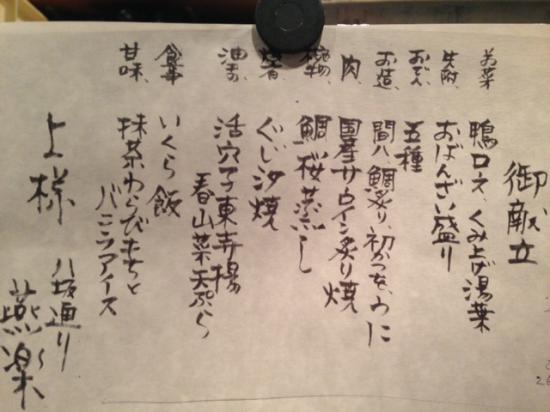 御献立
お菜 鴨ロース、くみ上げ湯葉
先附、おばんざい盛り
おでん、五種
お造、間八、鯛炙り、初かつを、うに
肉、国産サーロイン炙り焼
椀物、鯛桜蒸し
焼肴 ぐじ汐焼
油もの、活穴子東寺揚
春山菜天ぷら
食事 いくら飯
甘味、抹茶わらびもちと
バニラアイス
上様
八坂通り
燕楽